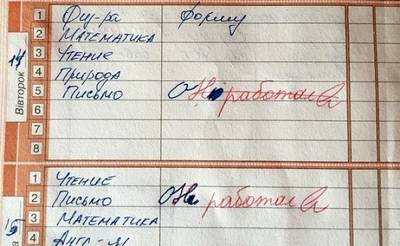 14
Вівторок
1 Физ-ра форму
2 Математика
3 Чтение
4 Природа
5 Письмо Она работала
6
7
8
15
1 Чтение
2 Письмо Она работала
3 Математика
4